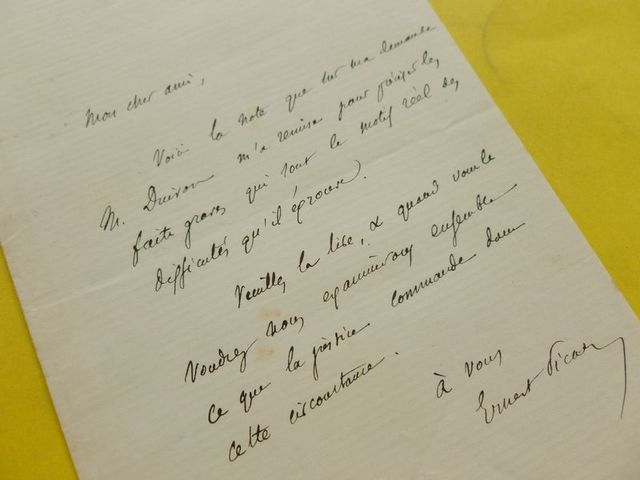 Mon cher ami,
Voici la note que sur ma demande
M. m'a remise pour préciser les
faits graves qui sont le motif réel des
difficultés qu'il éprouve.
Veuillez la lire, & quand vous le
voudrez nous examinerons ensemble
ce que la justice commande dans
cette circonstance.
à vous
Ernest Picard